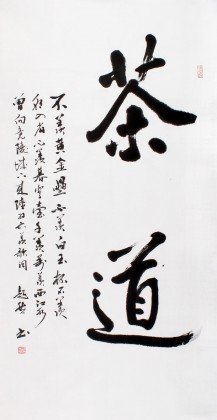 茶道
不羡黄金罍不羡白玉杯不羡
朝入省不羡暮登臺千羡萬羡西江水
曾向竟陵城下来陸羽六羡歌词 书